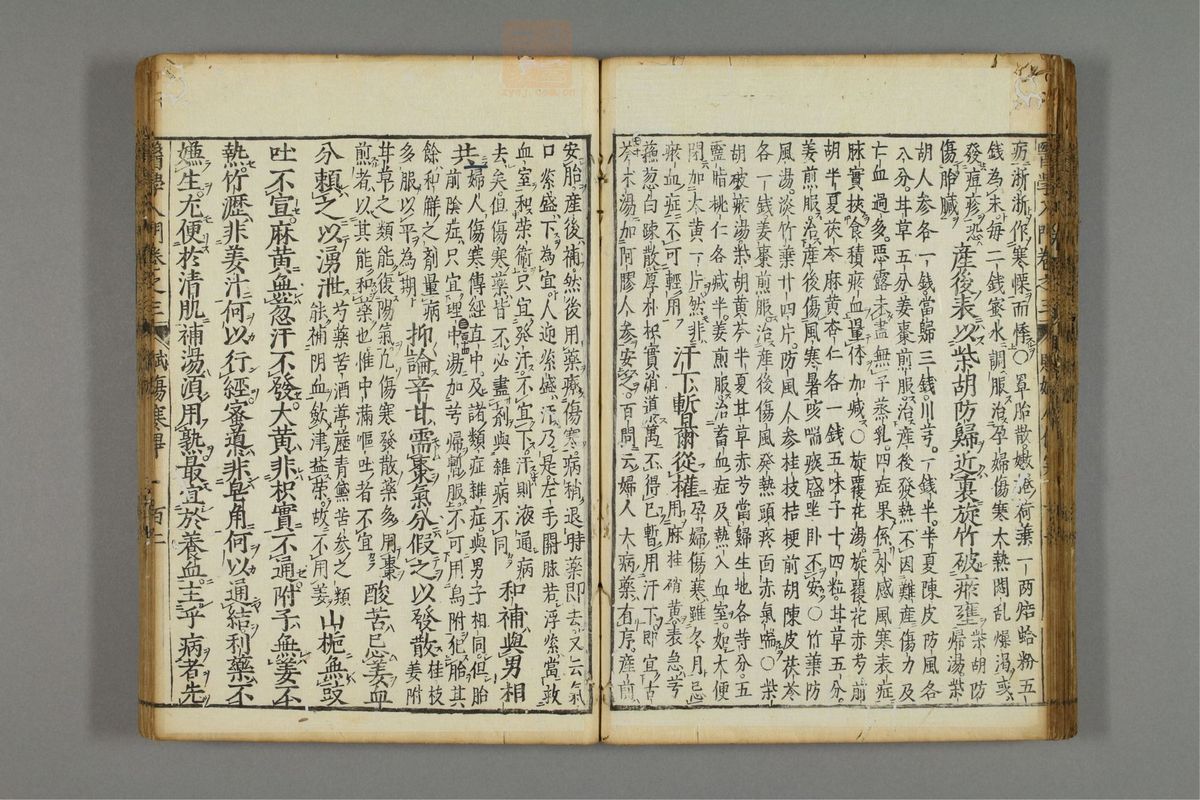 疬浙浙作寒慄而悸○罩胎散嫩卷荷葉一兩焙蛤粉五
錢為末每二錢蜜水調服治孕婦傷寒大熱悶乱燥渴或
發痘疹恐
傷胎臟 産後表以柴胡防歸近裏旋竹破瘀壅 柴胡防
歸湯柴
胡人参各一錢當歸三錢川芎一錢半半夏陳皮防風各
八分甘草五分姜棗煎服治産後發熱不因難産傷力及
亡血過多惡露未盡無子蒸乳四症果係外感風寒表症
脉實挾食積瘀血量体加减○旋覆花湯旋覆花赤芍前
胡半夏茯苓麻黄杏仁各一錢五味子十四粒甘草五分
姜煎服治産後傷風寒暑咳喘痰盛坐卧不安○竹葉防
風湯淡竹葉廿四片防風人参桂枝桔梗前胡陳皮茯苓
各一錢姜棗煎服治産後傷風發熱頭疼面赤氣喘○柴
胡破瘀湯柴胡黄芩半夏甘草赤芍當歸生地各等分五
靈脂桃仁各减半姜煎服治畜血症及熱入血室如大便
閉加大黄一片然非
瘀血症不可輕用 汗下暫爾從權 孕婦傷寒雖冬月忌
用麻桂硝黄表急芎
蘓葱白䟽散厚朴枳實消道萬不得已暫用汗下即宜古
芩术湯加阿膠人参安之百問云婦人大病藥有序産前
安胎産後補然後用藥療傷寒病稍退時藥即去又云氣
口緊盛下為宜人迎緊盛汗乃是左手關脉若浮緊當救
血室和榮衛只宜發汗不宜下汗則液通病
去矣但傷寒藥皆不必盡剤與雜病不同 和補與男相
共 婦人傷寒傳經直中及諸類症雜症與男子相同但胎
前陰症只宜理中湯加芎歸暫服不可用烏附犯胎其
餘和觧之剤量病
多服以平為期 抑論辛甘需棗氣分假之以發散 桂枝
姜附
甘草之類能復陽氣凡傷寒發散藥多用棗
煎者以其能和藥也惟中滿嘔吐者不宜 酸苦忌姜血
分頼之以湧泄 芍藥苦酒葶藶青黛苦参之類
能補阴血歛津益榮故不用姜 山梔無豉
吐不宣麻黄無葱汗不發大黄非枳實不通附子無姜不
熱竹瀝非姜汁何以行經蜜導非皂角何以通結利藥不
嫌生尤便於清肌補湯湏用熟最宜於養血主乎病者先
醫學入門卷之三 賦傷寒 百二